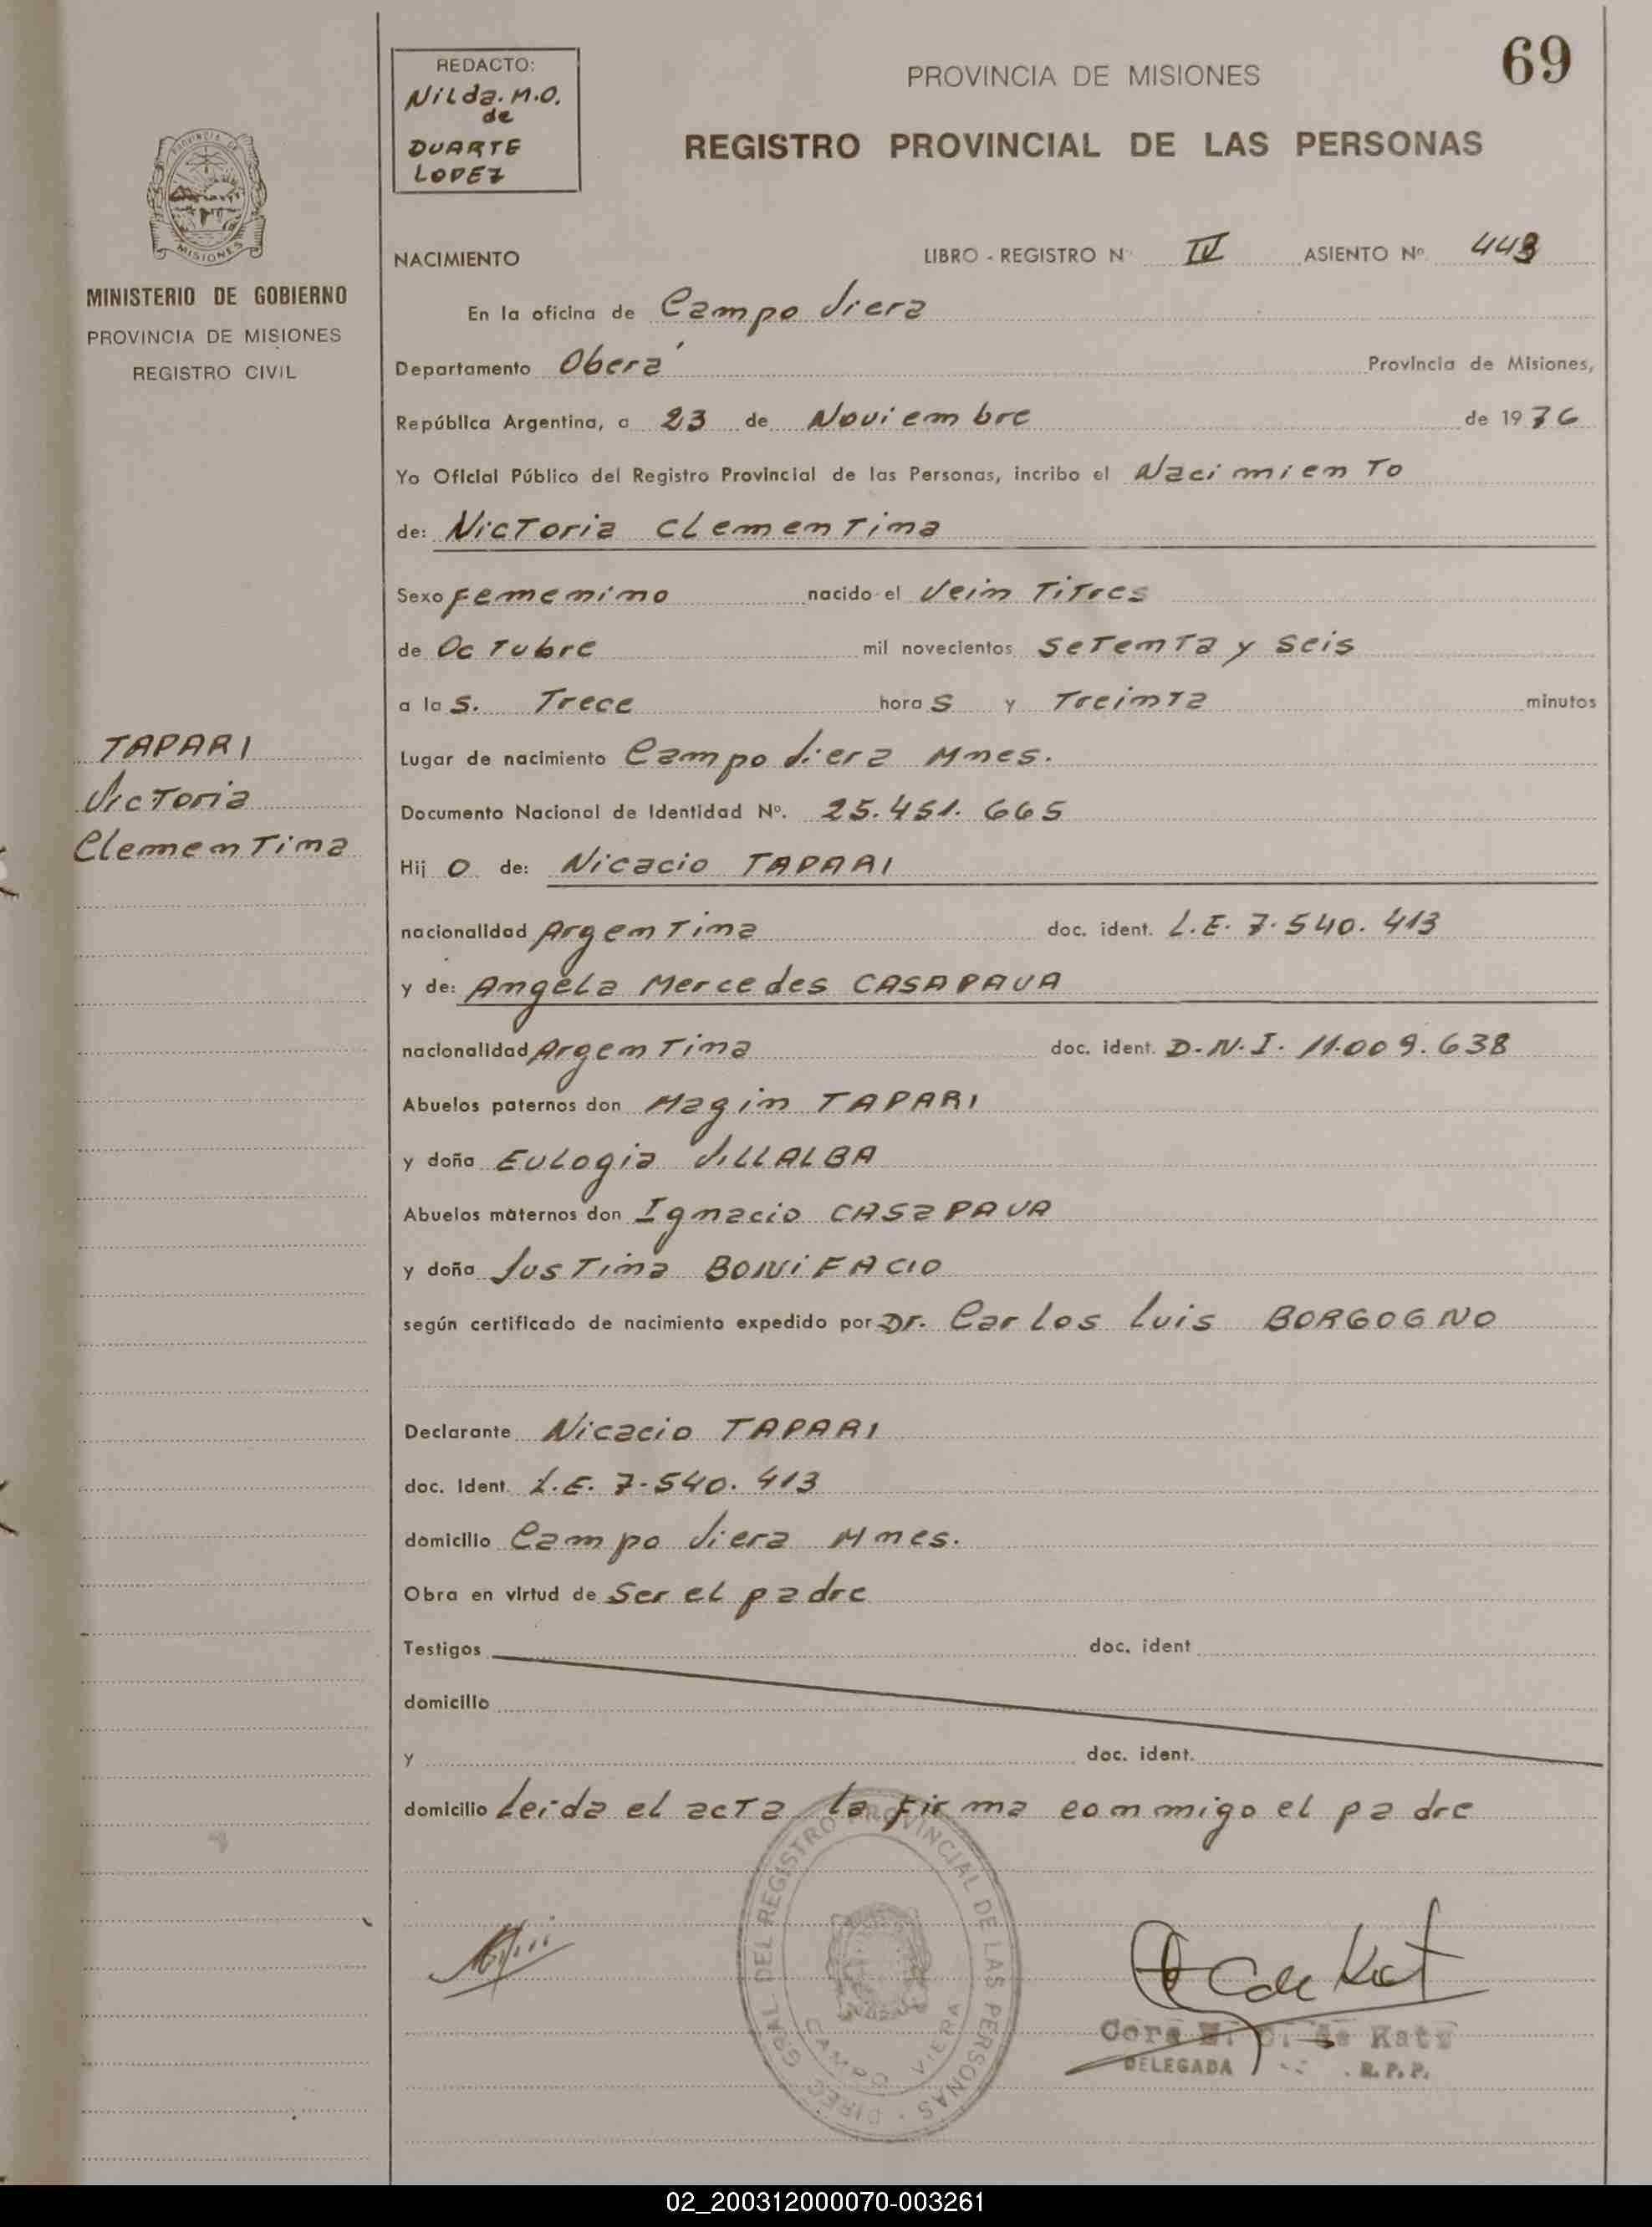 69
REDACTO:
Nilda. M.O.
de
DUARTE
LOPEZ
PROVINCIA DE MISIONES
REGISTRO PROVINCIAL DE LAS PERSONAS
MISIONES
MINISTERIO DE GOBIERNO
PROVINCIA DE MISIONES
REGISTRO CIVIL
NACIMIENTO LIBRO - REGISTRO N° IV ASIENTO Nº 443
En la oficina de Campo Viera
Departamento Oberá Provincia de Misiones,
República Argentina, a 23 de Noviembre de 1976
Yo Oficial Público del Registro Provincial de las Personas, incribo el Nacimiento
de: Victoria Clementina
Sexo Femenino nacido el Veintitres
de Octubre mil novecientos Setenta y Seis
a las. Trece horas y Treinta minutos
Lugar de nacimiento Campo Viera Mnes.
Documento Nacional de Identidad Nº. 25.451.665
Hijo de: Nicacio TAPARI
nacionalidad Argentina doc. ident. L.E. 7.540.413
y de: Angela Mercedes CASAPAVA
nacionalidad Argentina doc. ident. D.N.I. 11.009.638
Abuelos paternos don Magin TAPARI
y doña Eulogia VILLALBA
Abuelos maternos don Ignacio CASaPAVA
y doña Justina BONIFACIO
según certificado de nacimiento expedido por Dr. Carlos Luis BORGOGNO
Declarante Nicacio TAPARI
doc. Ident. L.E. 7.540.413
domicilio Campo Viera Mnes.
Obra en virtud de Ser el padre
Testigos doc. ident
domicilio
y doc. ident.
domicilio Leida el acta la firma conmigo el padre
TAPARI
Victoria
Clementina
DIREC. GRAL. DEL REGISTRO PROVINCIAL DE LAS PERSONAS
CAMPO VIERA
C de Kat
Cora de Katz
DELEGADA R.P.P.
02_200312000070-003261